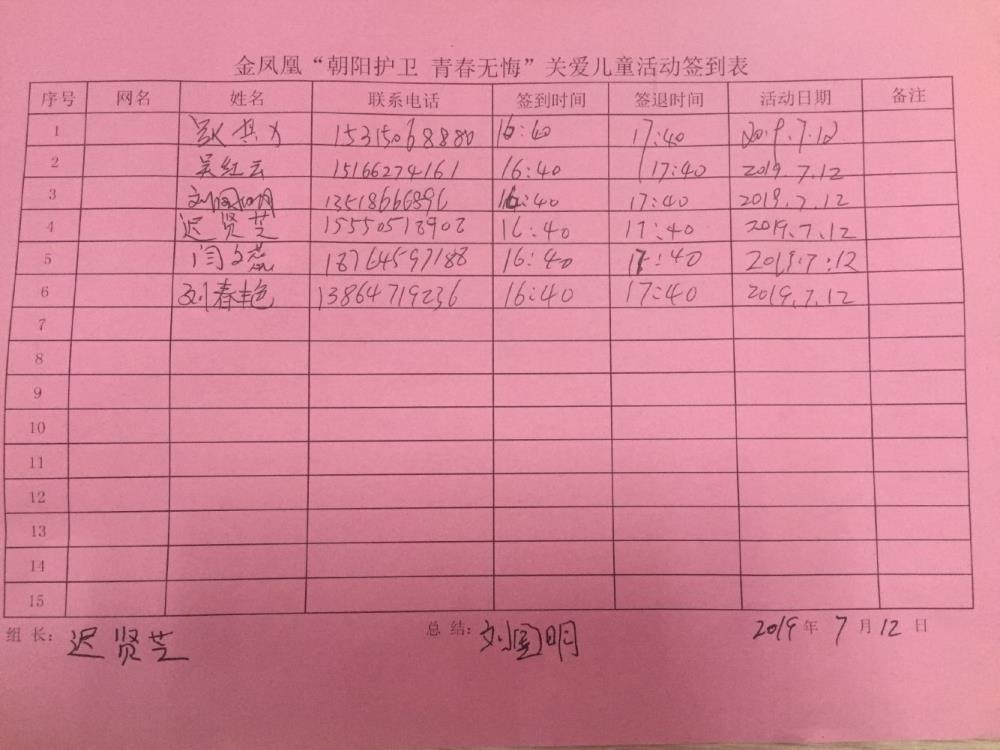 金凤凰“朝阳护卫 青春无悔”关爱儿童活动签到表
序号 网名 姓名 联系电话 签到时间 签退时间 活动日期 备注
1 15315068880 16:40 17:40 2019.7.12
2 吴红云 15166274161 16:40 17:40 2019.7.12
3 刘国明 13518666896 16:40 17:40 2019.7.12
4 迟贤芝 15550513902 16:40 17:40 2019.7.12
5 闫文 18764597188 16:40 17:40 2019.7.12
6 刘春艳 13864719236 16:40 17:40 2019.7.12
7
8
9
10
11
12
13
14
15
组 长: 迟贤芝 总 结: 刘国明 2019年 7月12日